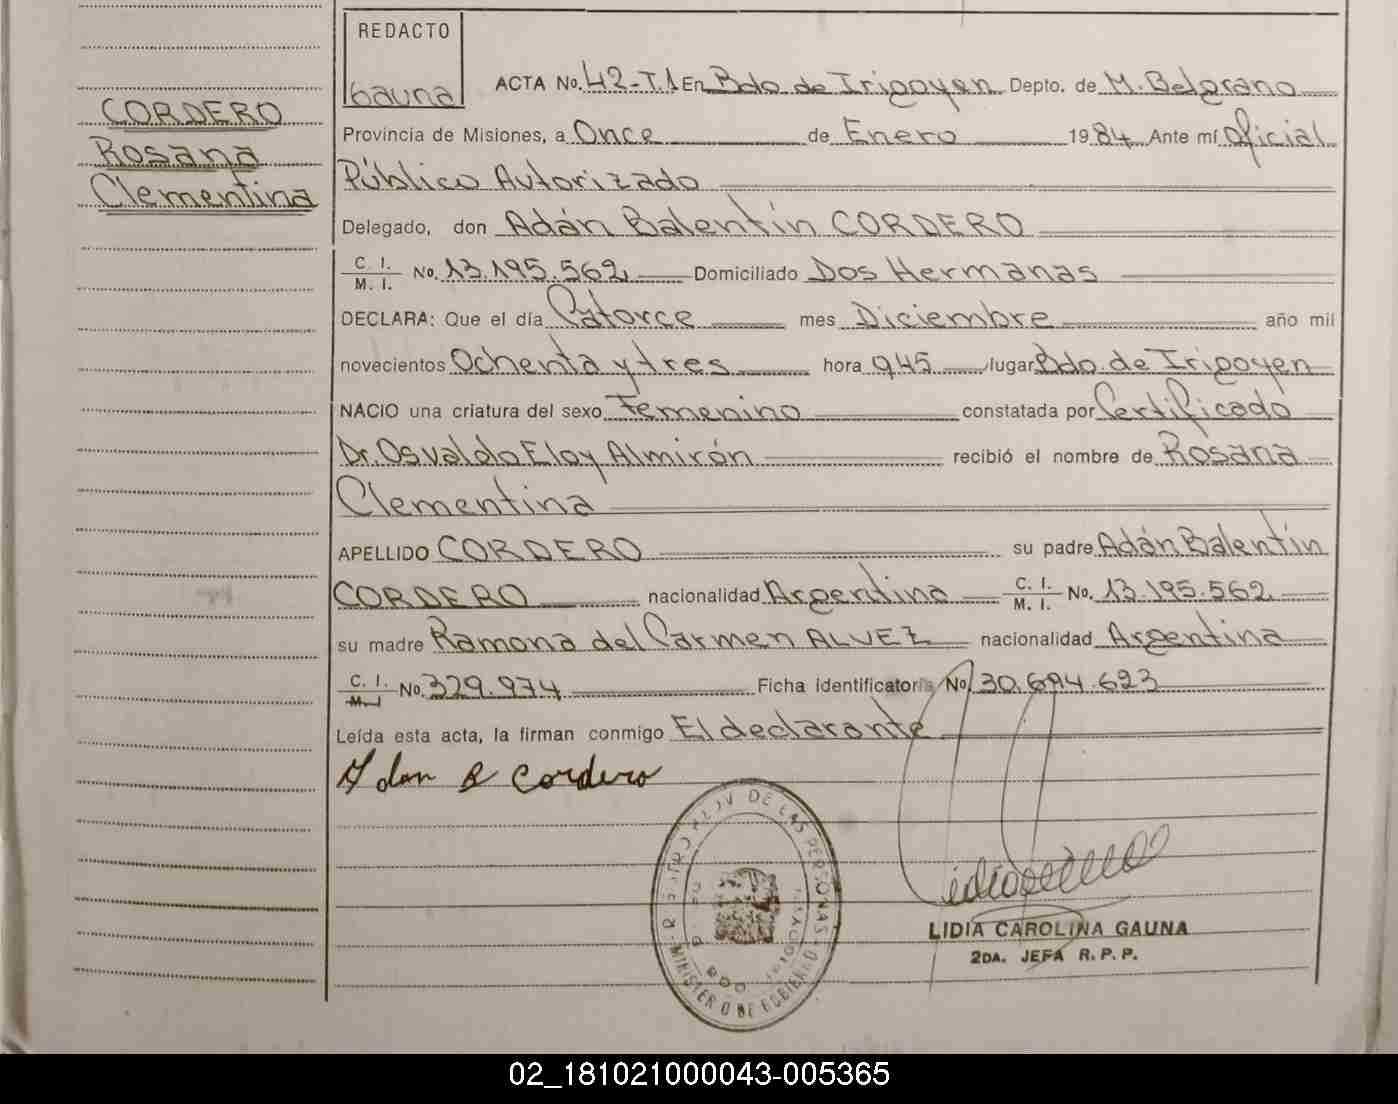 REDACTO
Gauna
CORDERO
Rosana
Clementina
ACTA No. 42-T.1 En Bdo de Irigoyen Depto. de M. Belgrano
Provincia de Misiones, a Once de Enero 1984 Ante mí Oficial
Público Autorizado
Delegado, don Adán Balentín CORDERO
C. I. M. I. No. 13.195.562 Domiciliado Dos Hermanas
DECLARA: Que el día Catorce mes Diciembre año mil
novecientos Ochenta y tres hora 945 lugar Bdo. de Irigoyen
NACIO una criatura del sexo Femenino constatada por Certificado
Dr. Osvaldo Eloy Almirón recibió el nombre de Rosana
Clementina
APELLIDO CORDERO su padre Adán Balentín
CORDERO nacionalidad Argentina C. I. M. I. No. 13.195.562
su madre Ramona del Carmen ALVEZ nacionalidad Argentina
C. I. M. I. No. 329.974 Ficha identificatoria No. 30.694.623
Leída esta acta, la firman conmigo El declarante
Adan B Cordero
DE LAS PERSONAS
MINISTERIO DE GOBIERNO
LIDIA CAROLINA GAUNA
2DA. JEFA R. P. P.
02_181021000043-005365